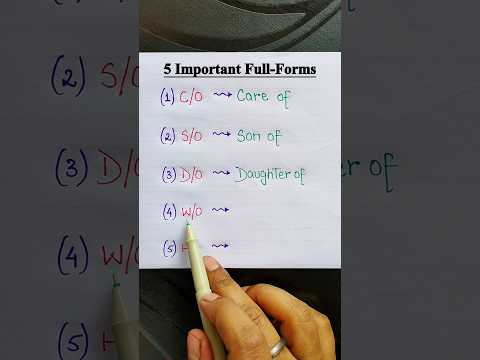 5 Important Full-Forms
(1) C/O ⇝ Care of
(2) S/O ⇝ Son of
(3) D/O ⇝ Daughter of
(4) W/O ⇝
(5) H ⇝